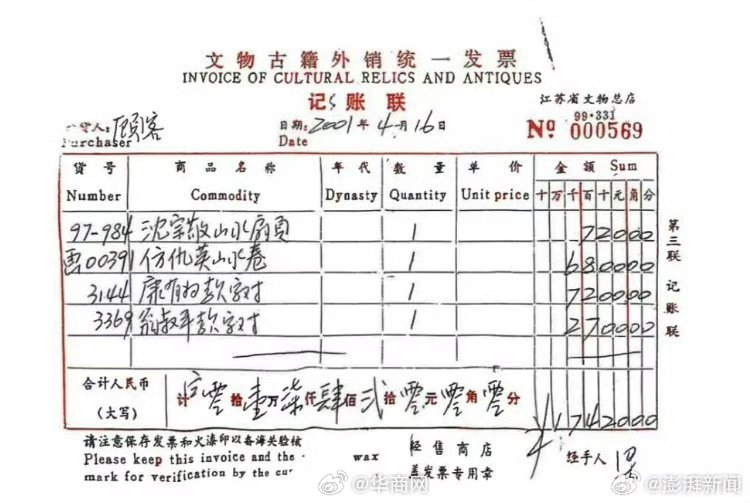 文物古籍外销统一发票
INVOICE OF CULTURAL RELICS AND ANTIQUES
记账联
江苏省文物总店
99·331
购货人: 顾客 日期: 2001年4月16日 № 000569
Purchaser Date
货号 商品名称 年代 数量 单价 金额 Sum
Number Commodity Dynasty Quantity Unit price 十万千百十元角分
97-984 沈宗敬山水扇页 1 72000
画00391 仿仇英山水卷 1 680000
3144 康有为款字对 1 720000
3369 翁叔平款字对 1 270000
合计人民币 计 零拾壹万柒仟肆佰贰拾零元零角零分
(大写) ¥1742000
第三联 记账联
请注意保存发票和火漆印以备海关验核 经售商店 经手人
Please keep this invoice and the wax 盖发票专用章
mark for verification by the cu
@华商网 @澎湃新闻